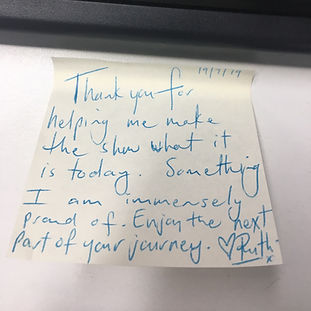 19/7/19
Thank you for
helping me make
the show what it
is today. Something
I am immensely
proud of. Enjoy the next
part of your journey. ♡Ruth
x